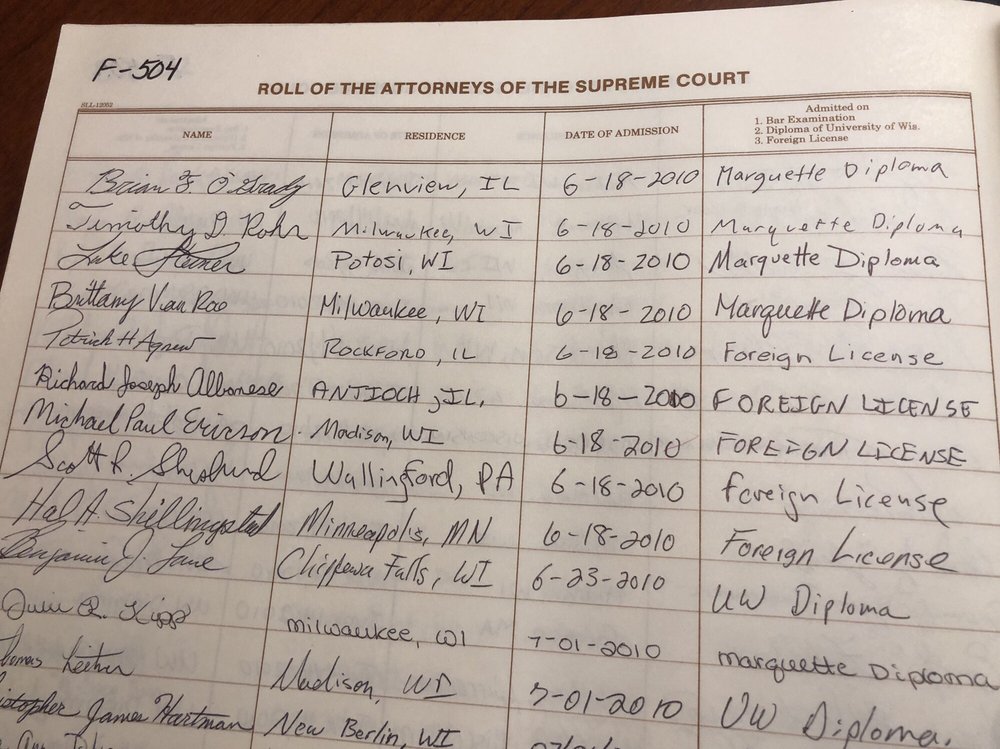 F-504
ROLL OF THE ATTORNEYS OF THE SUPREME COURT
SLL-12052
NAME RESIDENCE DATE OF ADMISSION Admitted on
1. Bar Examination
2. Diploma of University of Wis.
3. Foreign License
Brian F. O'Grady Glenview, IL 6-18-2010 Marquette Diploma
Timothy D. Rohr Milwaukee, WI 6-18-2010 Marquette Diploma
Luke Steiner Potosi, WI 6-18-2010 Marquette Diploma
Brittany Van Roo Milwaukee, WI 6-18-2010 Marquette Diploma
Patrick H Agnew ROCKFORD, IL 6-18-2010 Foreign License
Richard Joseph Albanese ANTIOCH, IL. 6-18-2010 FOREIGN LICENSE
Michael Paul Ericson Madison, WI 6-18-2010 FOREIGN LICENSE
Scott R. Wallingford, PA 6-18-2010 foreign License
Hal A Skillingstad Minneapolis, MN 6-18-2010 Foreign License
Benjamin J. Lane Chippewa Falls, WI 6-23-2010 UW Diploma
R. Kipp milwaukee, WI 7-01-2010 marquette Diploma
Madison, WI 7-01-2010 UW Diploma.
James Hartman New Berlin, WI